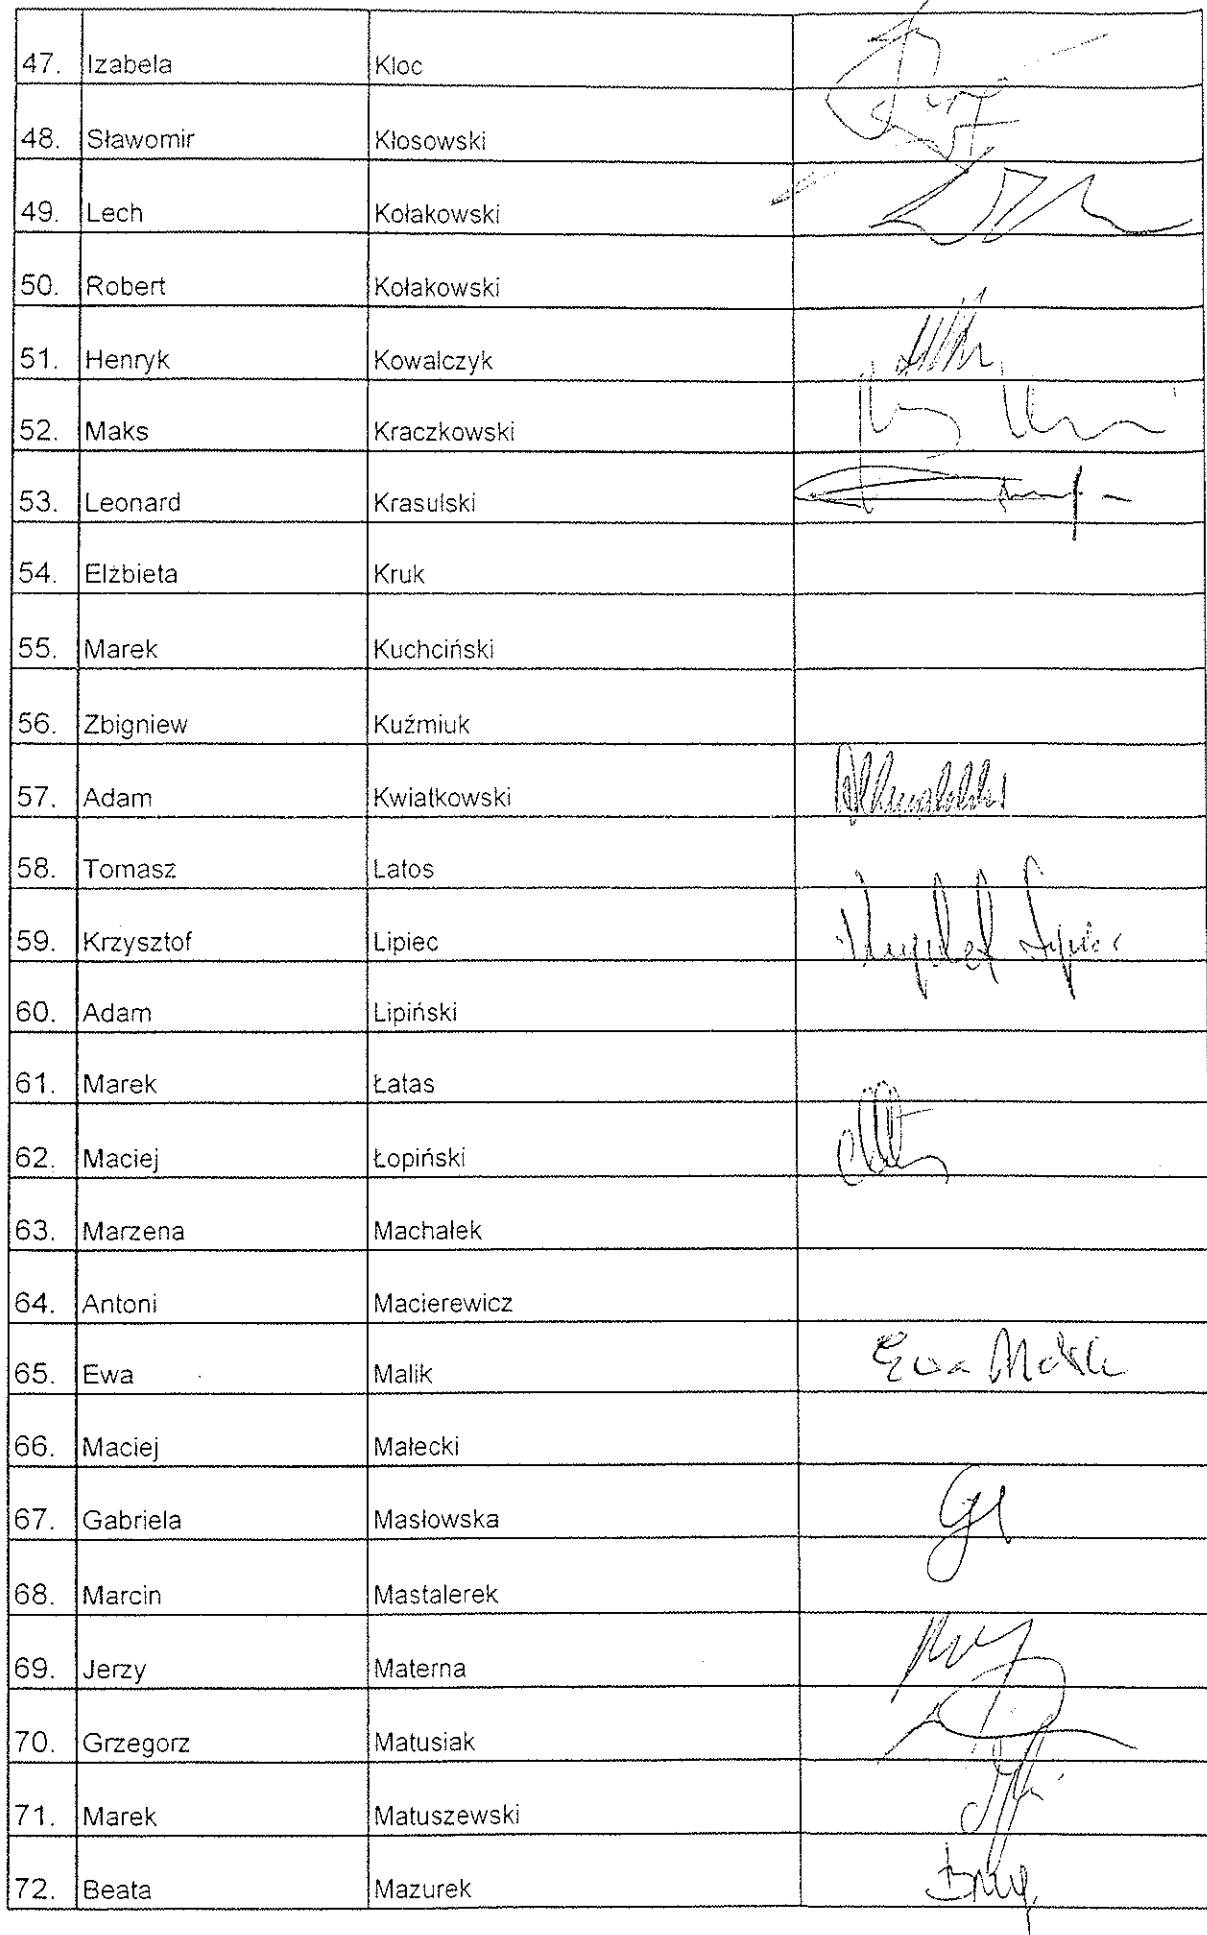 47. Izabela Kloc
48. Sławomir Kłosowski
49. Lech Kołakowski
50. Robert Kołakowski
51. Henryk Kowalczyk
52. Maks Kraczkowski
53. Leonard Krasulski
54. Elżbieta Kruk
55. Marek Kuchciński
56. Zbigniew Kuźmiuk
57. Adam Kwiatkowski
58. Tomasz Latos
59. Krzysztof Lipiec
60. Adam Lipiński
61. Marek Łatas
62. Maciej Łopiński
63. Marzena Machałek
64. Antoni Macierewicz
65. Ewa Malik Ewa Malik
66. Maciej Małecki
67. Gabriela Masłowska
68. Marcin Mastalerek
69. Jerzy Materna
70. Grzegorz Matusiak
71. Marek Matuszewski
72. Beata Mazurek